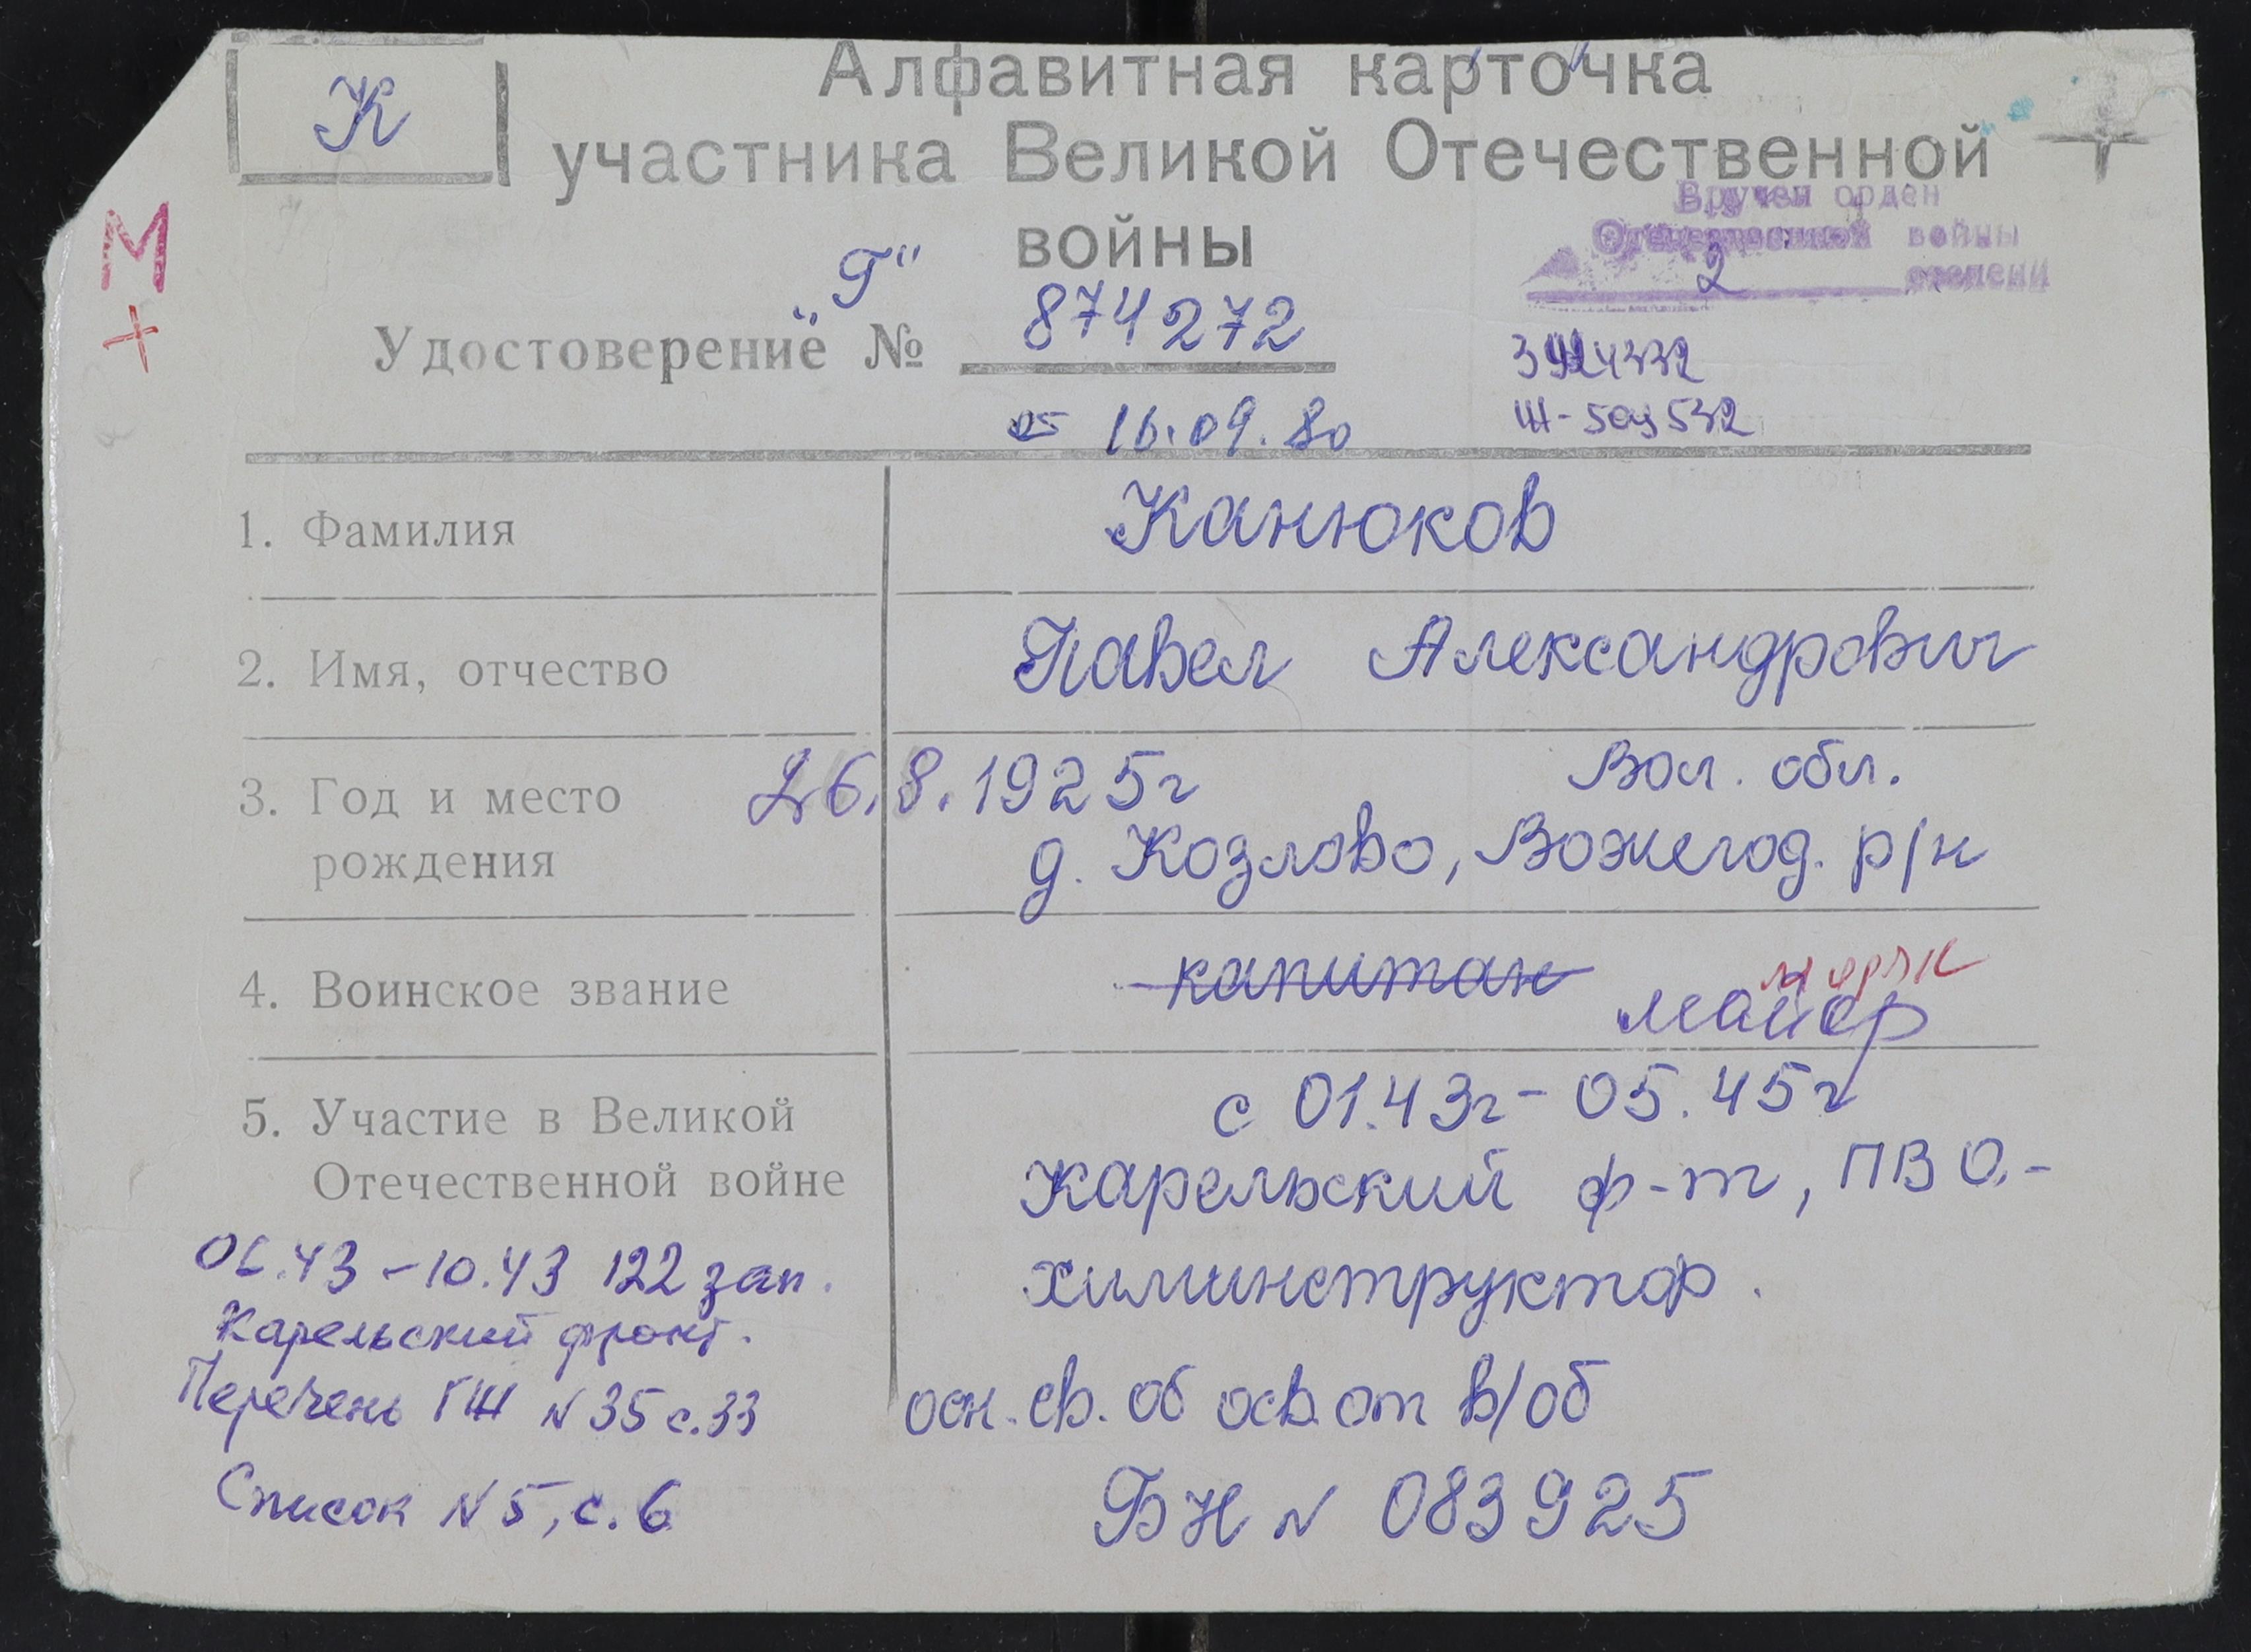 К
Алфавитная карточка
участника Великой Отечественной
войны
М
+
Вручен орден
Отечественной войны
2 степени
"Г"
Удостоверение № 874272
от 16.09.80
Ш-504532
1. Фамилия Канюков
2. Имя, отчество Павел Александрович
3. Год и место рождения 26.8.1925г Вол. обл.
д. Козлово, Вожегод. р/н
4. Воинское звание капитан майор
5. Участие в Великой Отечественной войне с 01.43г - 05.45г
Карельский ф-т, ПВО.-
химинструктор.
06.43-10.43 122 зап.
Карельский фронт.
Перечень ГШ N35 с.33
Список N5, с.6
осн. св. об осв. от в/об
БН N 083925